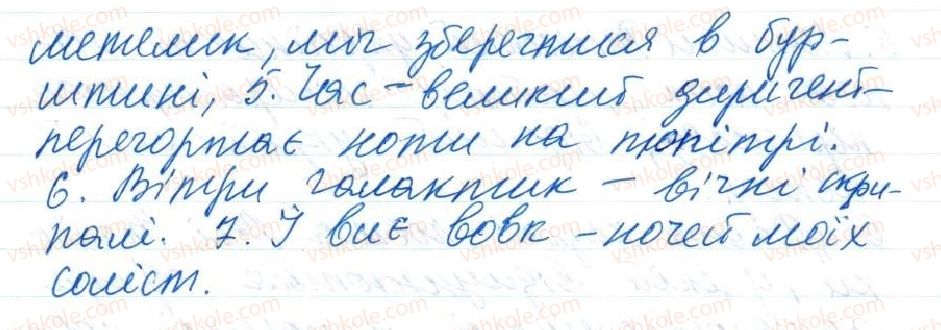 метелик, міг зберегтися в бур-
штині, 5. Час – великий диригент –
перегортає ноти на пюпітрі.
6. Вітри галактик – вічні скри-
палі. 7. І виє вовк – ночей моїх
соліст.